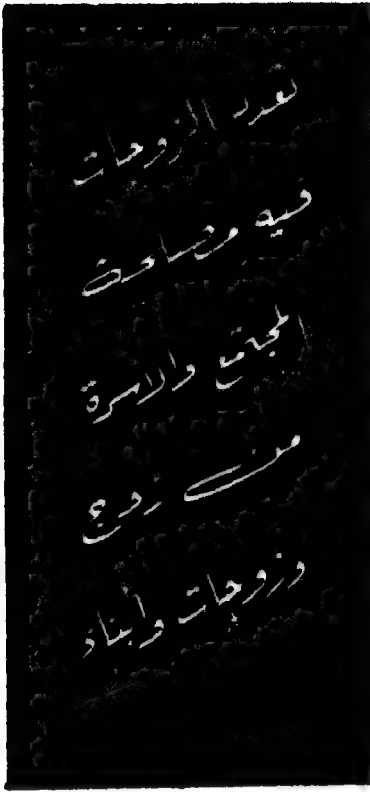 تعدد الزوجات
فيه مصلحة
المجتمع والاسرة
من زوج
وزوجات وأبناء